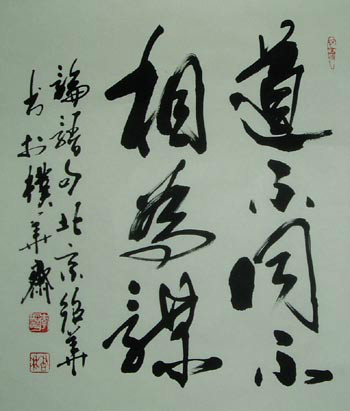 道不同不
相为謀
論語句北京銘華
书於樸華齋